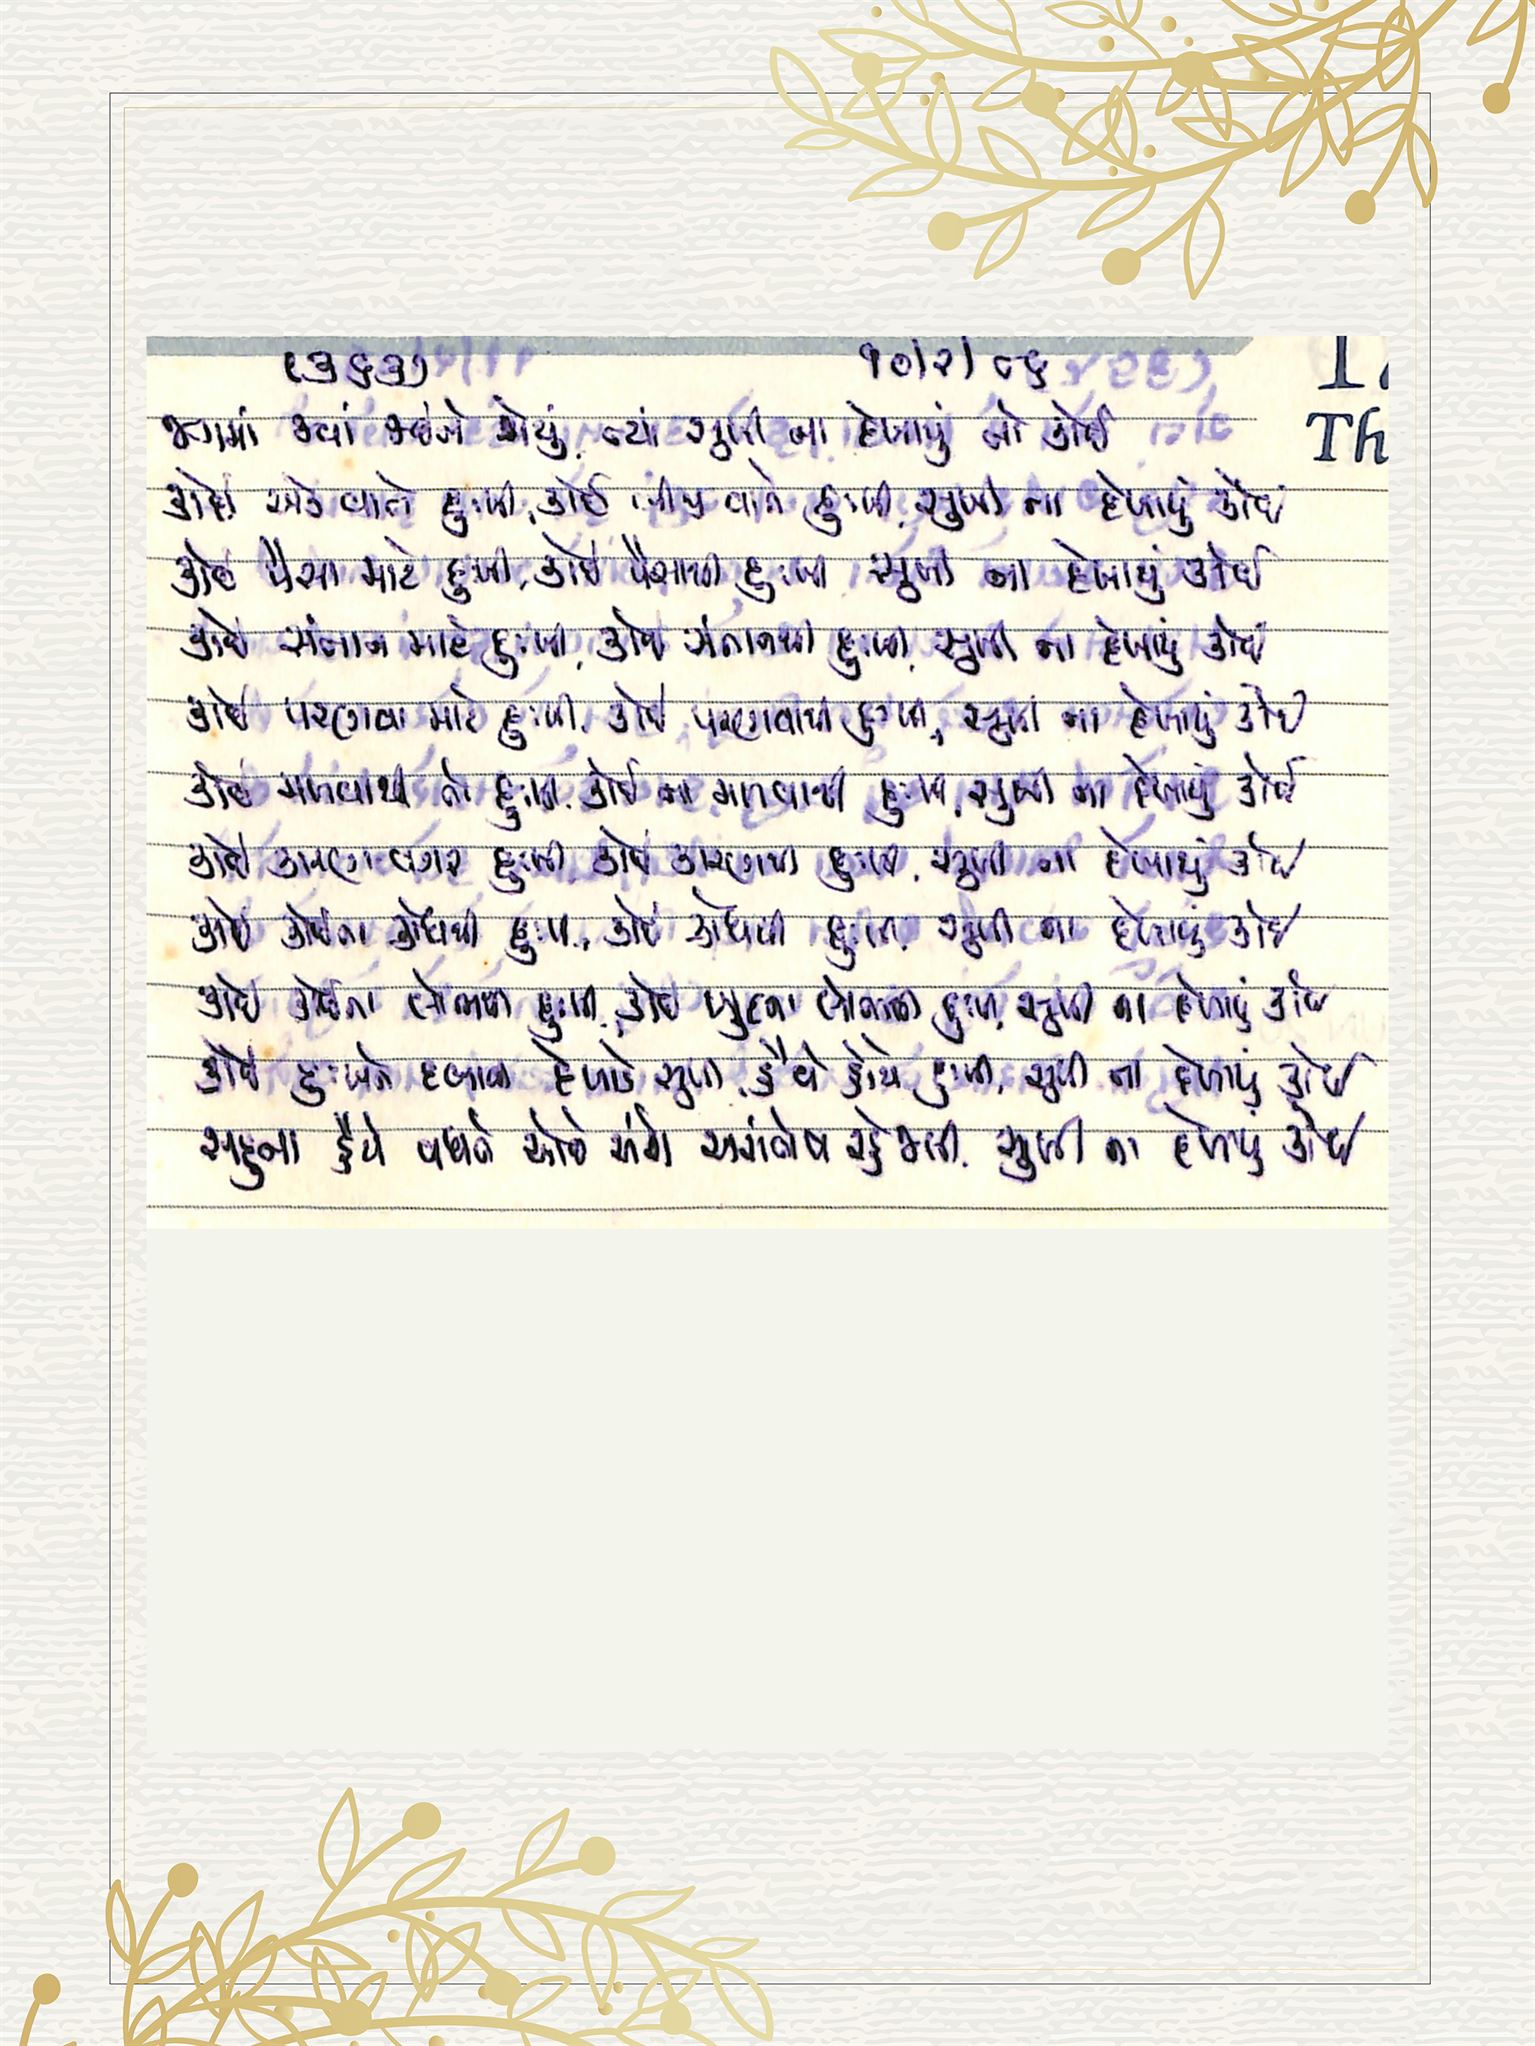 (૩૬૩) ૧૦/૨/૮૬
Th
જગમાં જ્યાં જઈને જોયું, ત્યાં સુખી ના દેખાયું તો કોઈ
કોઈ એક વાતે દુઃખી, કોઈ બીજી વાતે દુઃખી, સુખી ના દેખાયું કોઈ
કોઈ પૈસા માટે દુઃખી, કોઈ પૈસાથી દુઃખી, સુખી ના દેખાયું કોઈ
કોઈ સંતાન માટે દુઃખી, કોઈ સંતાનથી દુઃખી, સુખી ના દેખાયું કોઈ
કોઈ પરણવા માટે દુઃખી, કોઈ પરણવાથી દુઃખી, સુખી ના દેખાયું કોઈ
કોઈ મળવાથી તો દુઃખી, કોઈ ના મળવાથી દુઃખી, સુખી ના દેખાયું કોઈ
કોઈ કારણ વગર દુઃખી, કોઈ કારણથી દુઃખી, સુખી ના દેખાયું કોઈ
કોઈ કોઈના ક્રોધથી દુઃખી, કોઈ ક્રોધથી દુઃખી, સુખી ના દેખાયું કોઈ
કોઈ કોઈના લોભથી દુઃખી, કોઈ ખુદના લોભથી દુઃખી, સુખી ના દેખાયું કોઈ
કોઈ દુઃખને દબાવી દેખાડે સુખી, હૈયે હોયે દુઃખી, સુખી ના દેખાયું કોઈ
સહુના હૈયે વધતે ઓછે અંશે અસંતોષ રહે જલી, સુખી ના દેખાયું કોઈ